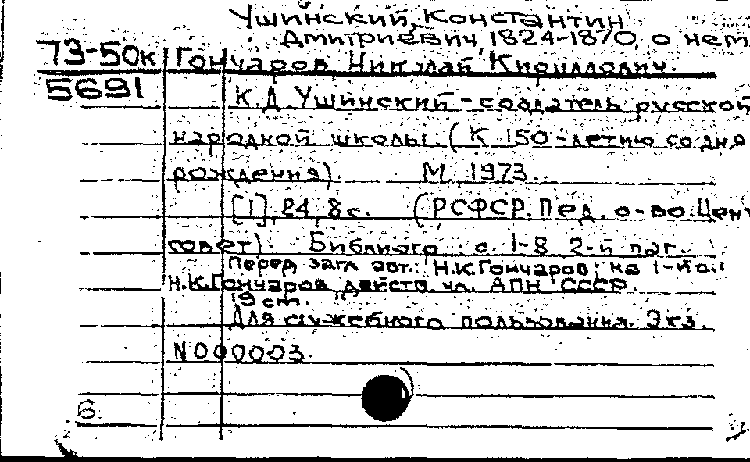 Ушинский, Константин
Дмитриевич, 1824-1870, о нем
73-50к Гончаров Николай Кириллович.
5691
К.Д. Ушинский - создатель русской
народной школы. (К 150-летию со дня
рождения). М. 1973.
[1], 24, 8 с. (РСФСР. Пед. о-во. Цент
совет). Библиогр.: с. 1-8 2-й паг.
Перед загл. авт.: Н.К. Гончаров; на 1-й с.:
Н.К. Гончаров действ. чл. АПН СССР.
Для служебного пользования. Экз.
N000003.
6.